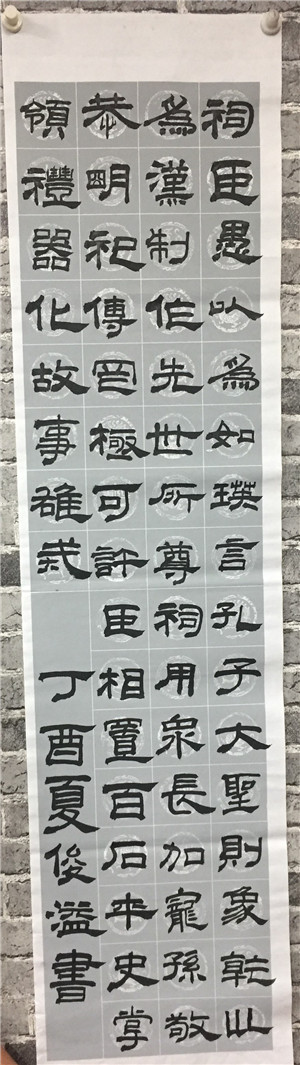 祠臣愚以為如瑛言孔子大聖則象乾坤
為漢制作先世所尊祠用眾長加寵孫敬
恭明祀傳罔極可許臣相置百石卒史掌
領禮器化故事雄戒
丁酉夏俊溢書